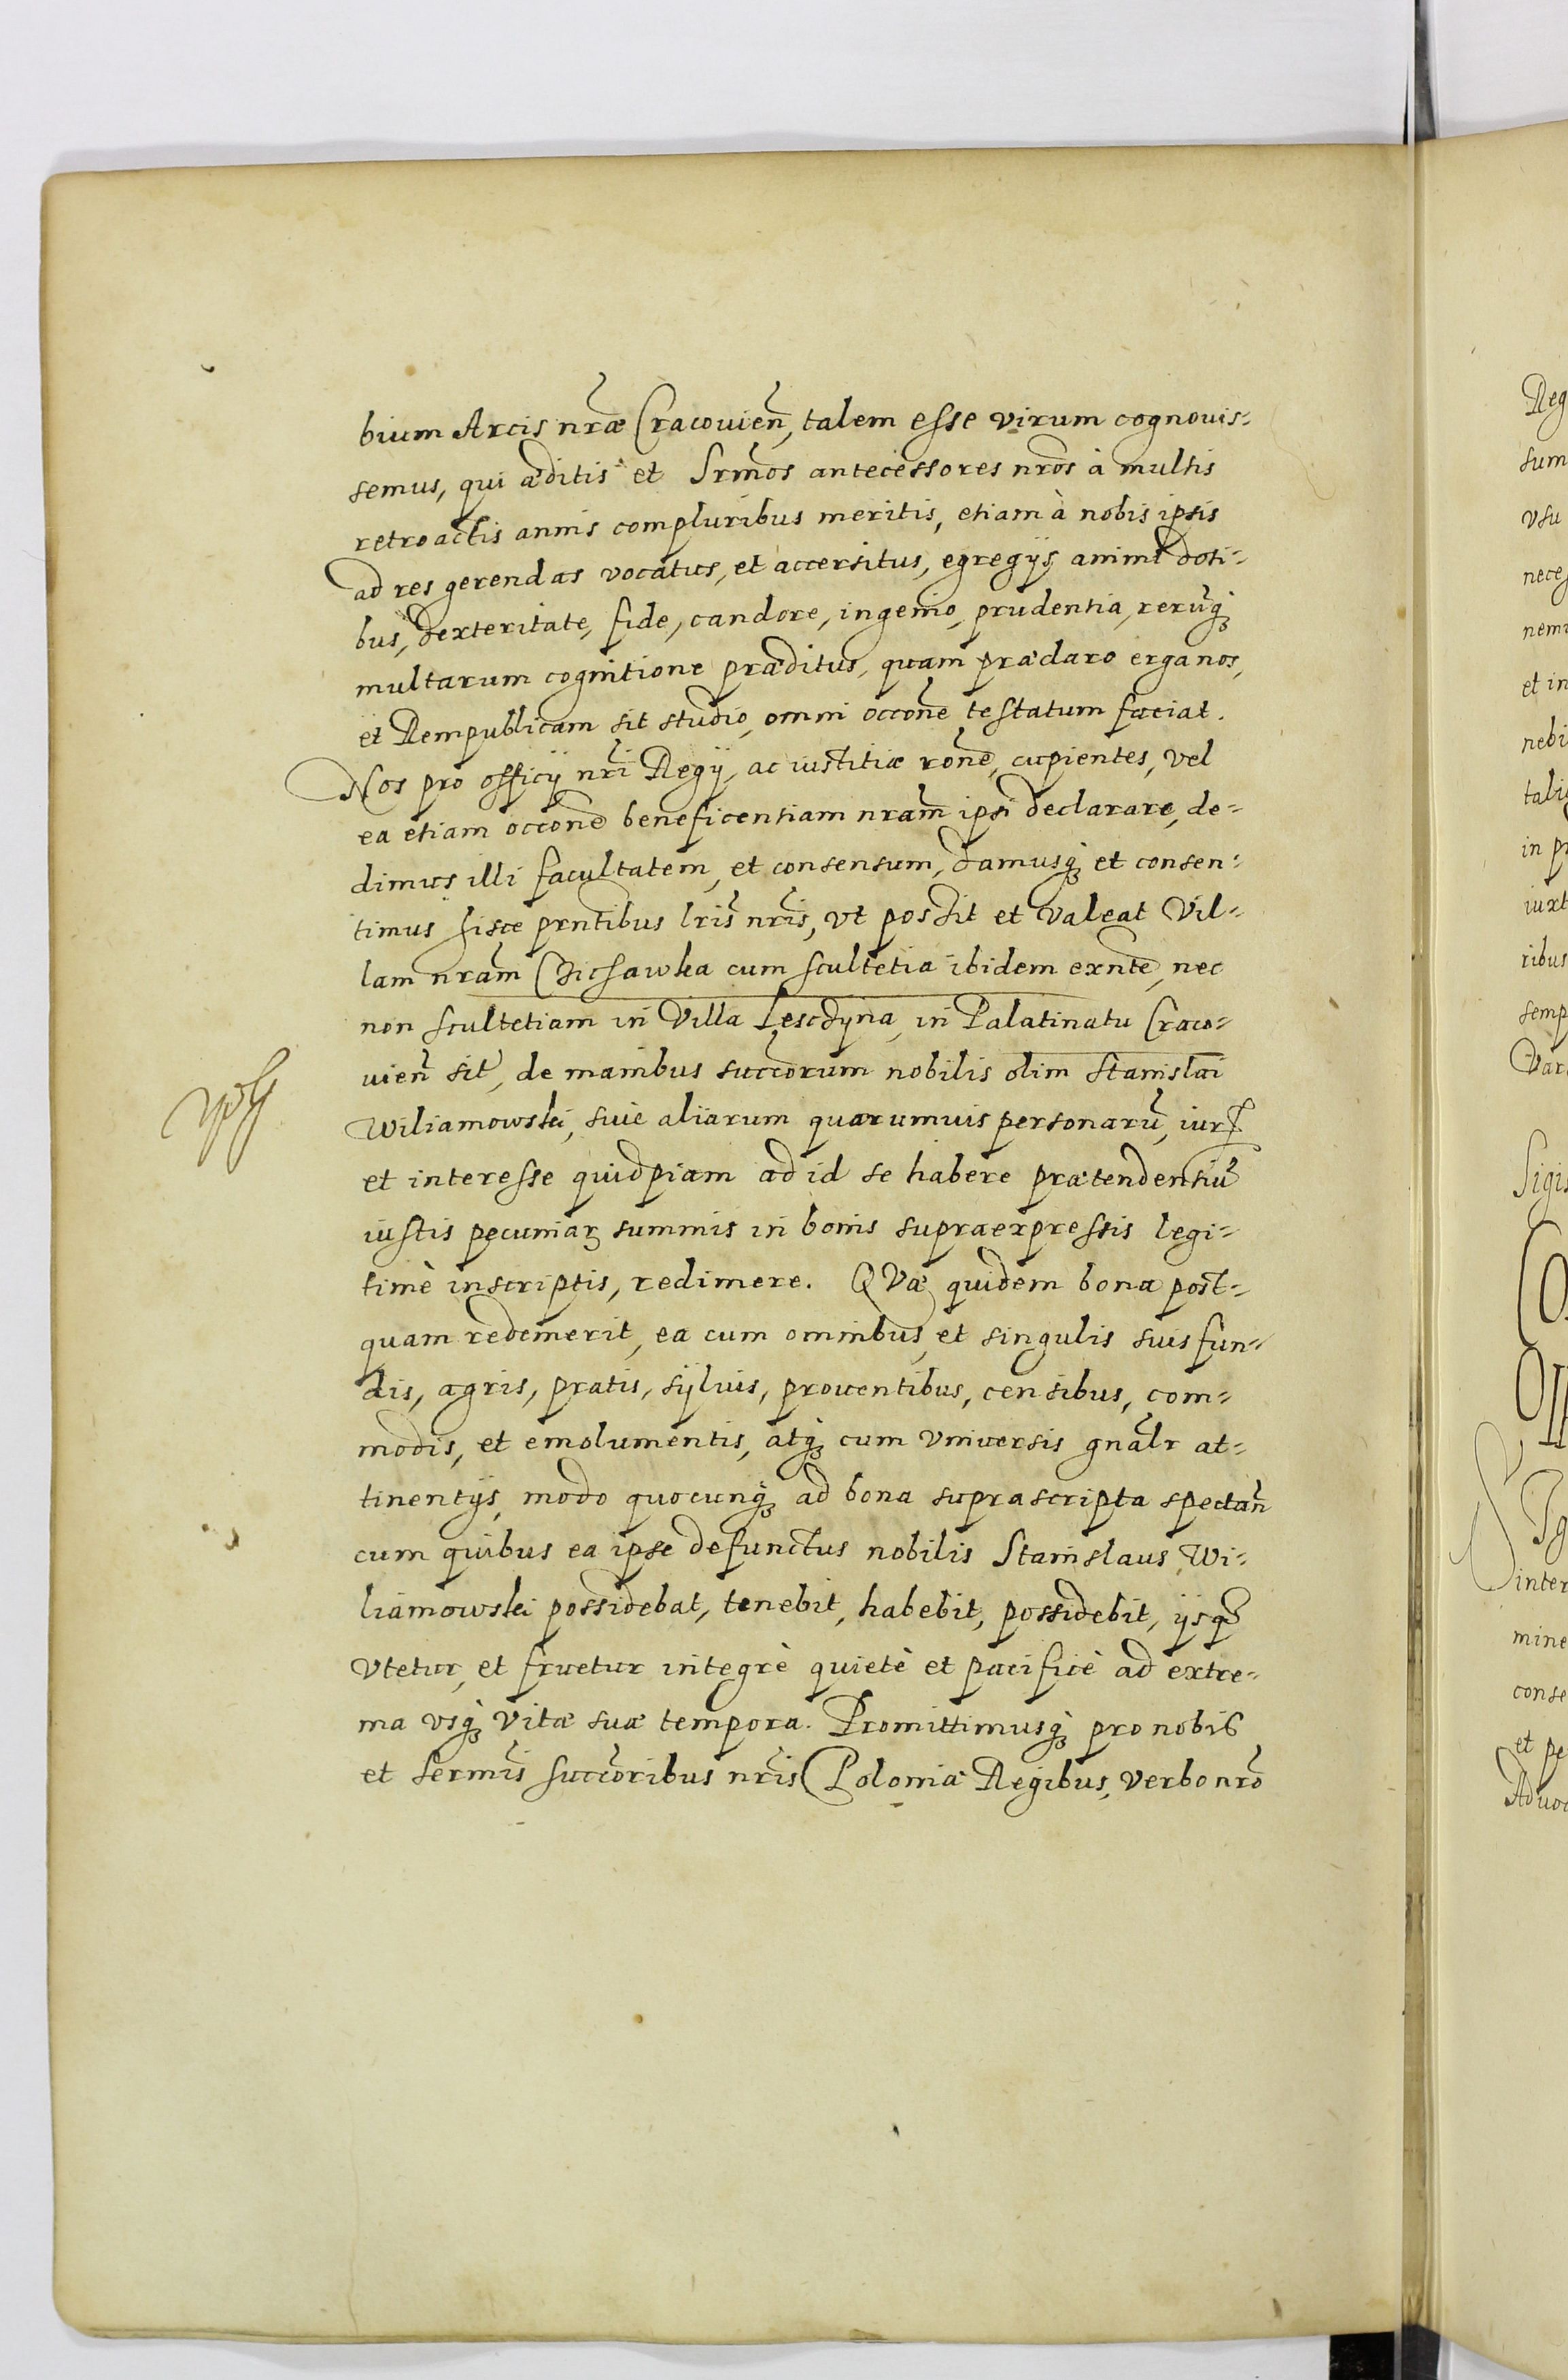 bium Arcis nr̃æ Cracouien̄, talem esse virum cognouis-
semus, qui æditis et Srm̃os antecessores nrõs à multis
retroactis annis compluribus meritis, etiam à nobis ipsis
ad res gerendas vocatus, et accersitus, egregijs animi doti-
bus, dexteritate, fide, candore, ingenio, prudentia, rerūq̃
multarum cognitione præditus, quam præclaro erga nos,
et Rempublicam sit studio, omni occõne testatum faciat.
Nos pro officij nr̃i Regij, ac iustitiæ rõne, cupientes, vel
ea etiam occõne beneficentiam nram̃ ipsi declarare, de-
dimus illi facultatem, et consensum, damusq̃ et consen-
timus hisce prñtibus lr̃is nr̃is, vt possit et valeat Vil-
lam nram̃ Cichawka cum scultetia ibidem exñte, nec
non scultetiam in Villa Lescdyna, in Palatinatu Craco-
uien̄ sit̃, de manibus succõrum nobilis olim Stanislai
Wiliamowski, siue aliarum quarumuis personarū, iur
et interesse quidpiam ad id se habere prætendentiū
iustis pecuniar summis in bonis supraexpressis legi-
timè inscriptis, redimere. QVæ quidem bona post-
quam redemerit, ea cum omnibus, et singulis suis fun-
dis, agris, pratis, syluis, prouentibus, censibus, com-
modis, et emolumentis, atq̃ cum vniuersis gnãlr at-
tinentijs, modo quocunq̃ ad bona suprascripta spectan̄
cum quibus ea ipse defunctus nobilis Stanislaus Wi-
liamowski possidebat, tenebit, habebit, possidebit, ijsq̃
vtetur, et fruetur integrè quietè et pacificè ad extre-
ma vsq̃ vitæ suæ tempora. Promittimusq̃ pro nobis
et Sermĩs succõribus nr̃is Poloniæ Regibus, verbo nrõ
Reg
sum
vsu
nece
et in
nebi
in p
iuxt
ribus
semp
Var
Sigis
inter
mine
conse
et pe
Aduoc